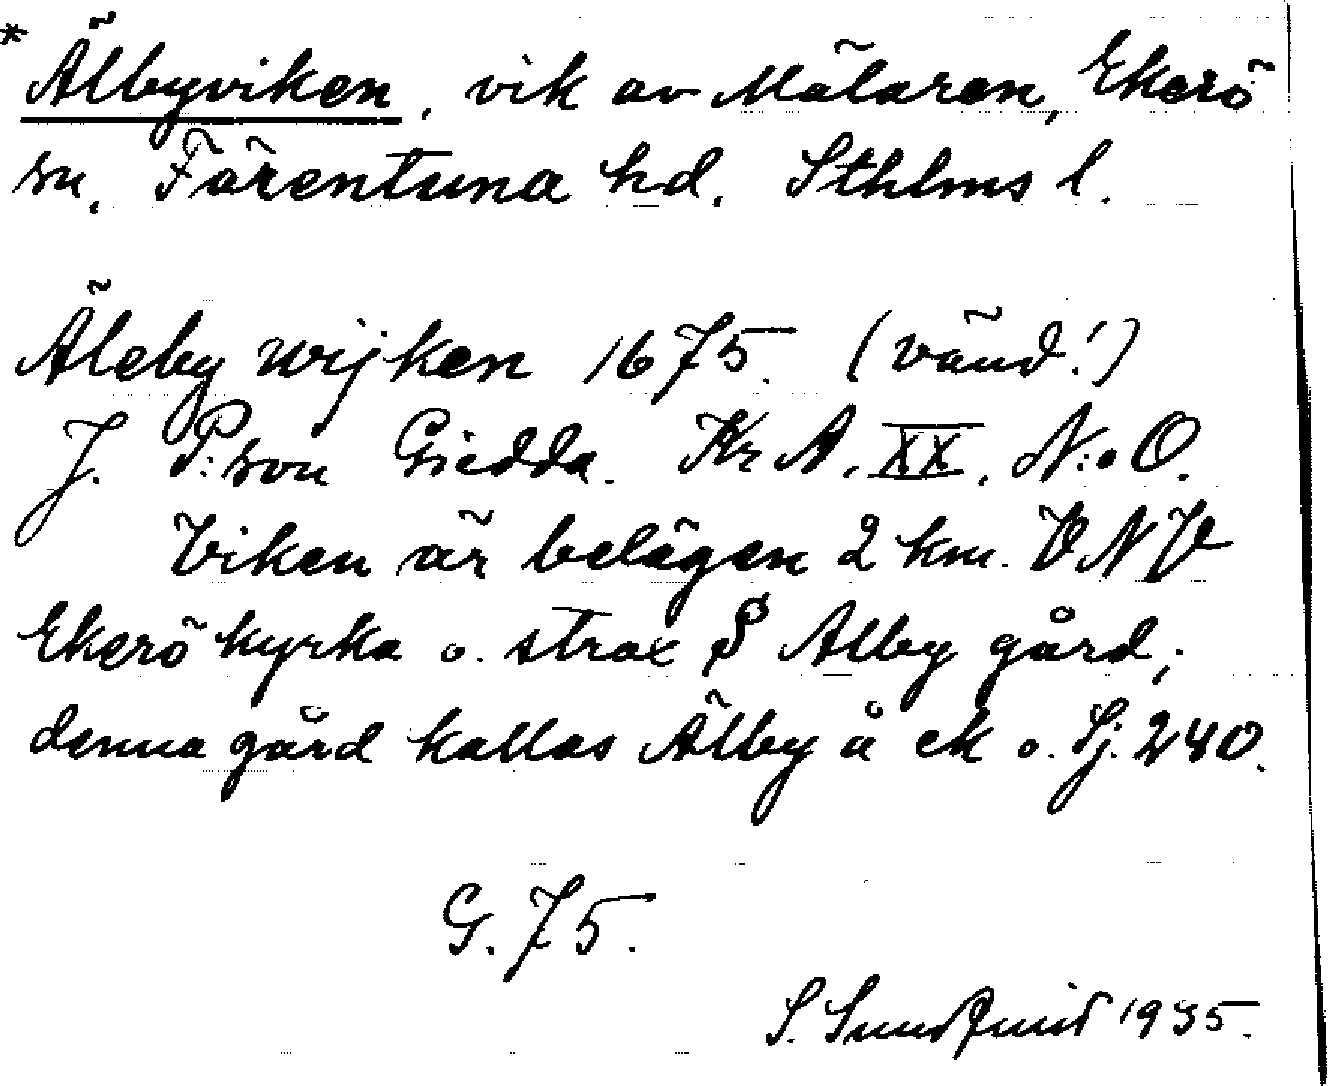 * Älbyviken, vik av Mälaren, Ekerö
sn, Färentuna hd. Sthlms l.
Äleby wijken 1675. (vänd!)
J. P:son Giedda. Kr A. XX. N:o O.
Viken är belägen 2 km. VNV
Ekerö kyrka o. strax S Alby gård,;
denna gård kallas Älby å ek o. Sj. 240.
G. 75.
S. Sundquist 1935.